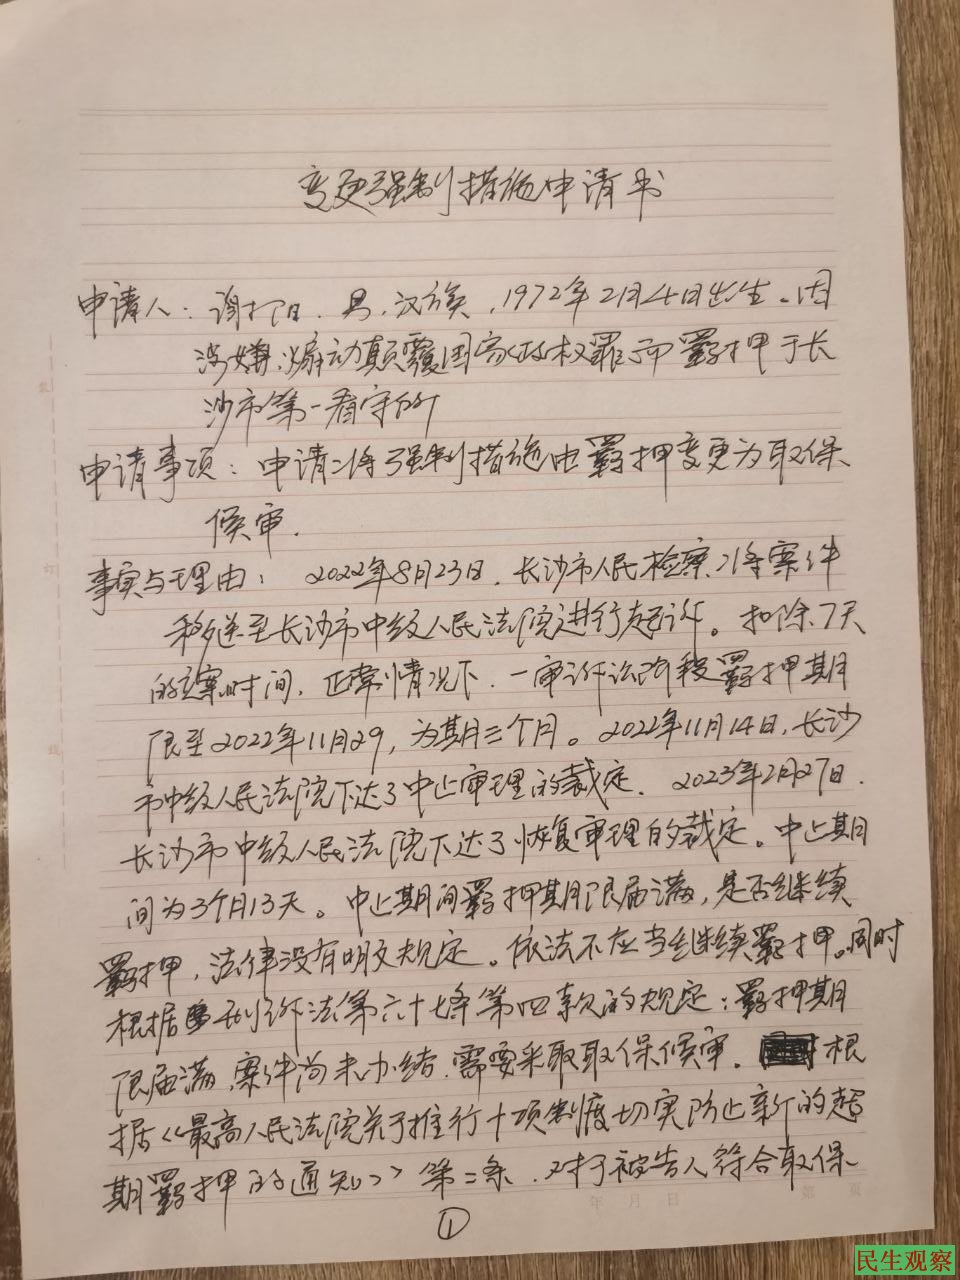 变更强制措施申请书
申请人：谢阳，男，汉族，1972年2月4日出生。因
涉嫌煽动颠覆国家政权罪而羁押于长
沙市第一看守所
申请事项：申请将强制措施由羁押变更为取保
候审。
事实与理由：2022年8月23日，长沙市人民检察将案件
移送至长沙市中级人民法院进行起诉。扣除7天
的立案时间，正常情况下，一审诉讼阶段羁押期
限至2022年11月29，为期三个月。2022年11月14日，长沙
市中级人民法院下达了中止审理的裁定，2023年2月27日，
长沙市中级人民法院下达了恢复审理的裁定。中止期
间为3个月13天。中止期间羁押期限届满，是否继续
羁押，法律没有明文规定。依法不应当继续羁押。同时
根据刑诉法第六十七条第四款的规定：羁押期
限届满，案件尚未办结，需要采取取保候审。根
据《最高人民法院关于推行十项制度切实防止新的超
期羁押的通知》第二条，对被告人符合取保
年 月 日 第 页
①
民生观察